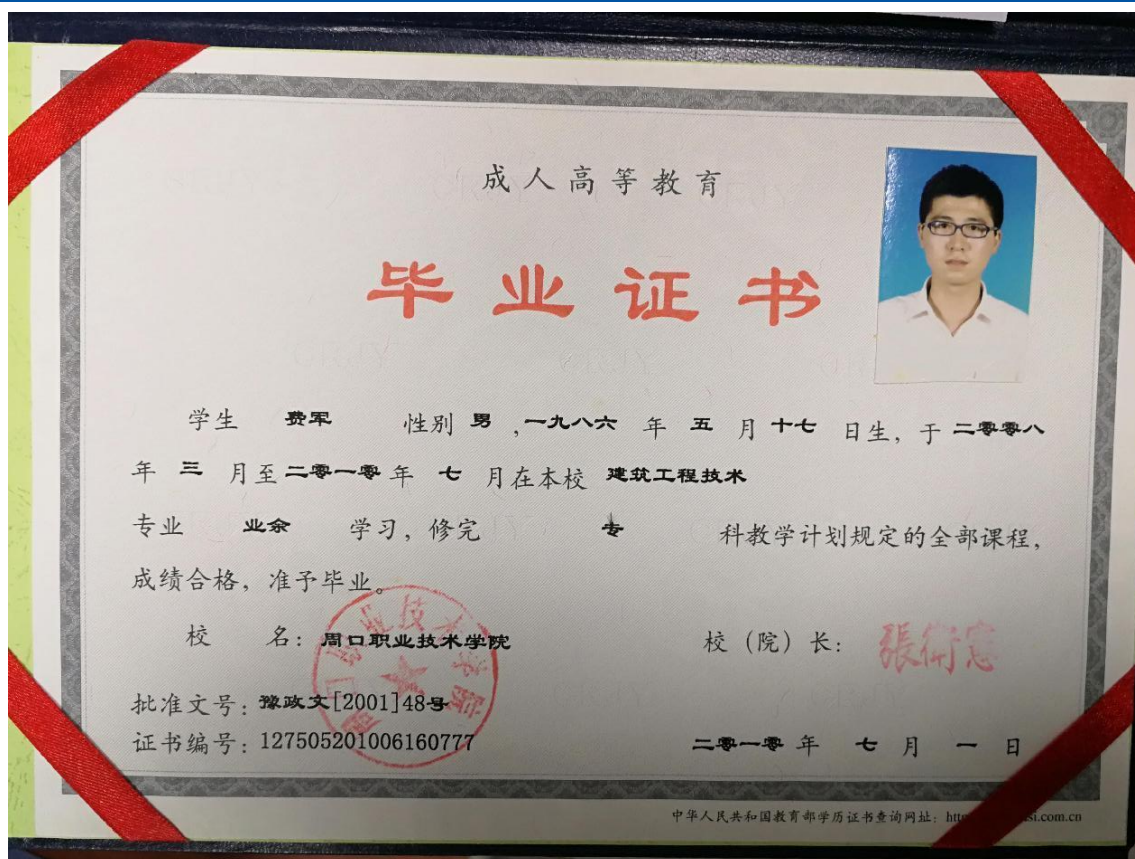 成人高等教育
毕业证书
学生 费军 性别 男,一九八六 年 五 月 十七 日生,于 二零零八
年 三 月至 二零一零 年 七 月在本校 建筑工程技术
专业 业余 学习,修完 专 科教学计划规定的全部课程,
成绩合格,准予毕业。
校 名:周口职业技术学院
校(院)长:張衛憲
周口职业技术学院
批准文号:豫政文[2001]48号
证书编号:127505201006160777
二零一零 年 七 月 一 日
中华人民共和国教育部学历证书查询网址:htt si.com.cn